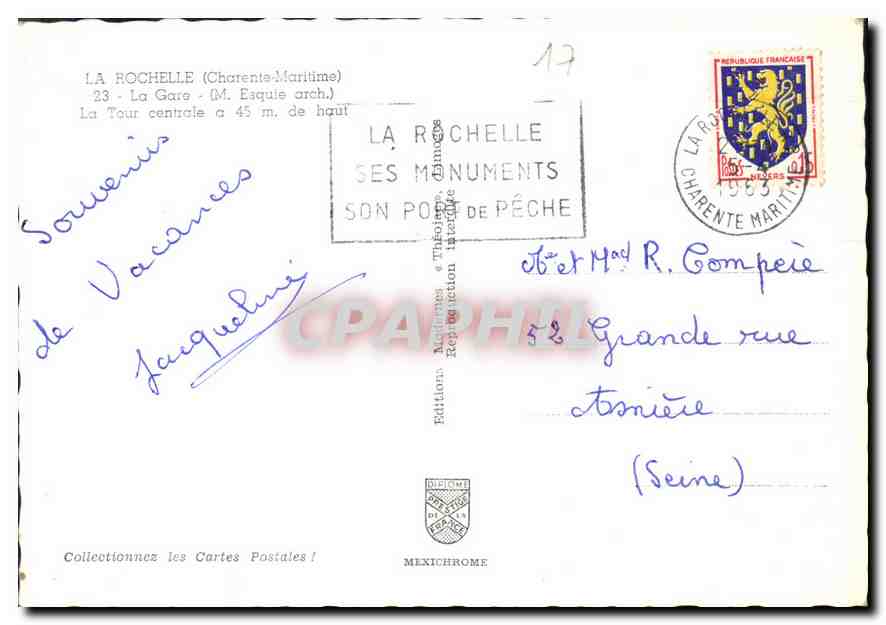 17
LA ROCHELLE (Charente-Maritime)
23 - La Gare - (M. Esquie arch.)
La Tour centrale a 45 m. de haut
LA ROCHELLE
SES MONUMENTS
SON PORT DE PÊCHE
REPUBLIQUE FRANÇAISE
POSTES 0,05
NEVERS
LA RO
1963
CHARENTE MARITIME
Souvenirs
de Vacances
Jacqueline
Editions Modernes « Théojac », Limoges
Reproduction interdite
et Mad R. Compeie
52 Grande rue
Asnière
(Seine)
CPAPHIL
DIPLOME
PRESTIGE
DE LA
FRANCE
MEXICHROME
Collectionnez les Cartes Postales !